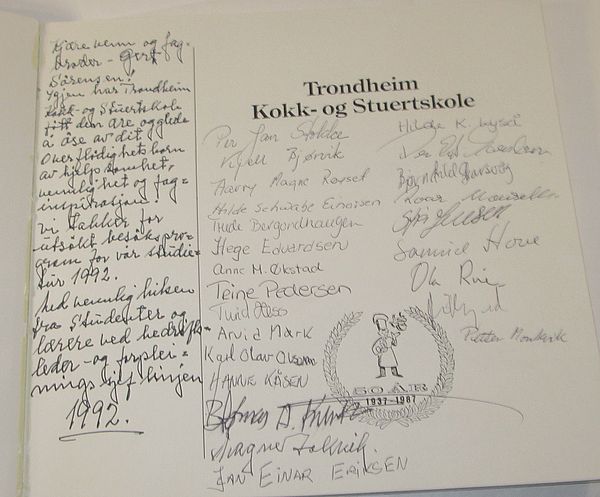 Kjære venn og fag-
broder - Gert
Sörensen!
Igjen har Trondheim
Kokk- og Stuertskole
fått den ære og glede
å öse av dit
Overflödighetshorn
av hjelpsomhet,
vennlighet og fag-
inspirasjon!
Vi takker for
utsökt besökspro-
gram for vår studie-
tur 1992.
Med vennlig hilsen
fra Studenter og
lærere ved
leder- og forplei-
nings sjef linjen
1992.
Trondheim
Kokk- og Stuertskole
Per Jan
Kjell Bjørvik
Harry Magne Røyset
Hilde Schwabe Einarsen
Trude Bergundhaugen
Hege Edvardsen
Anne M. Økstad
Teine Pedersen
Turid
Arvid Mørk
Karl Olav Olsen
HANNE KÅSEN
Magner
JAN EINAR ERIKSEN
Hilde K. Lyså
Bjørnhild
Roar
Samuel Hove
Ola
Petter
50 ÅR
1937-1987